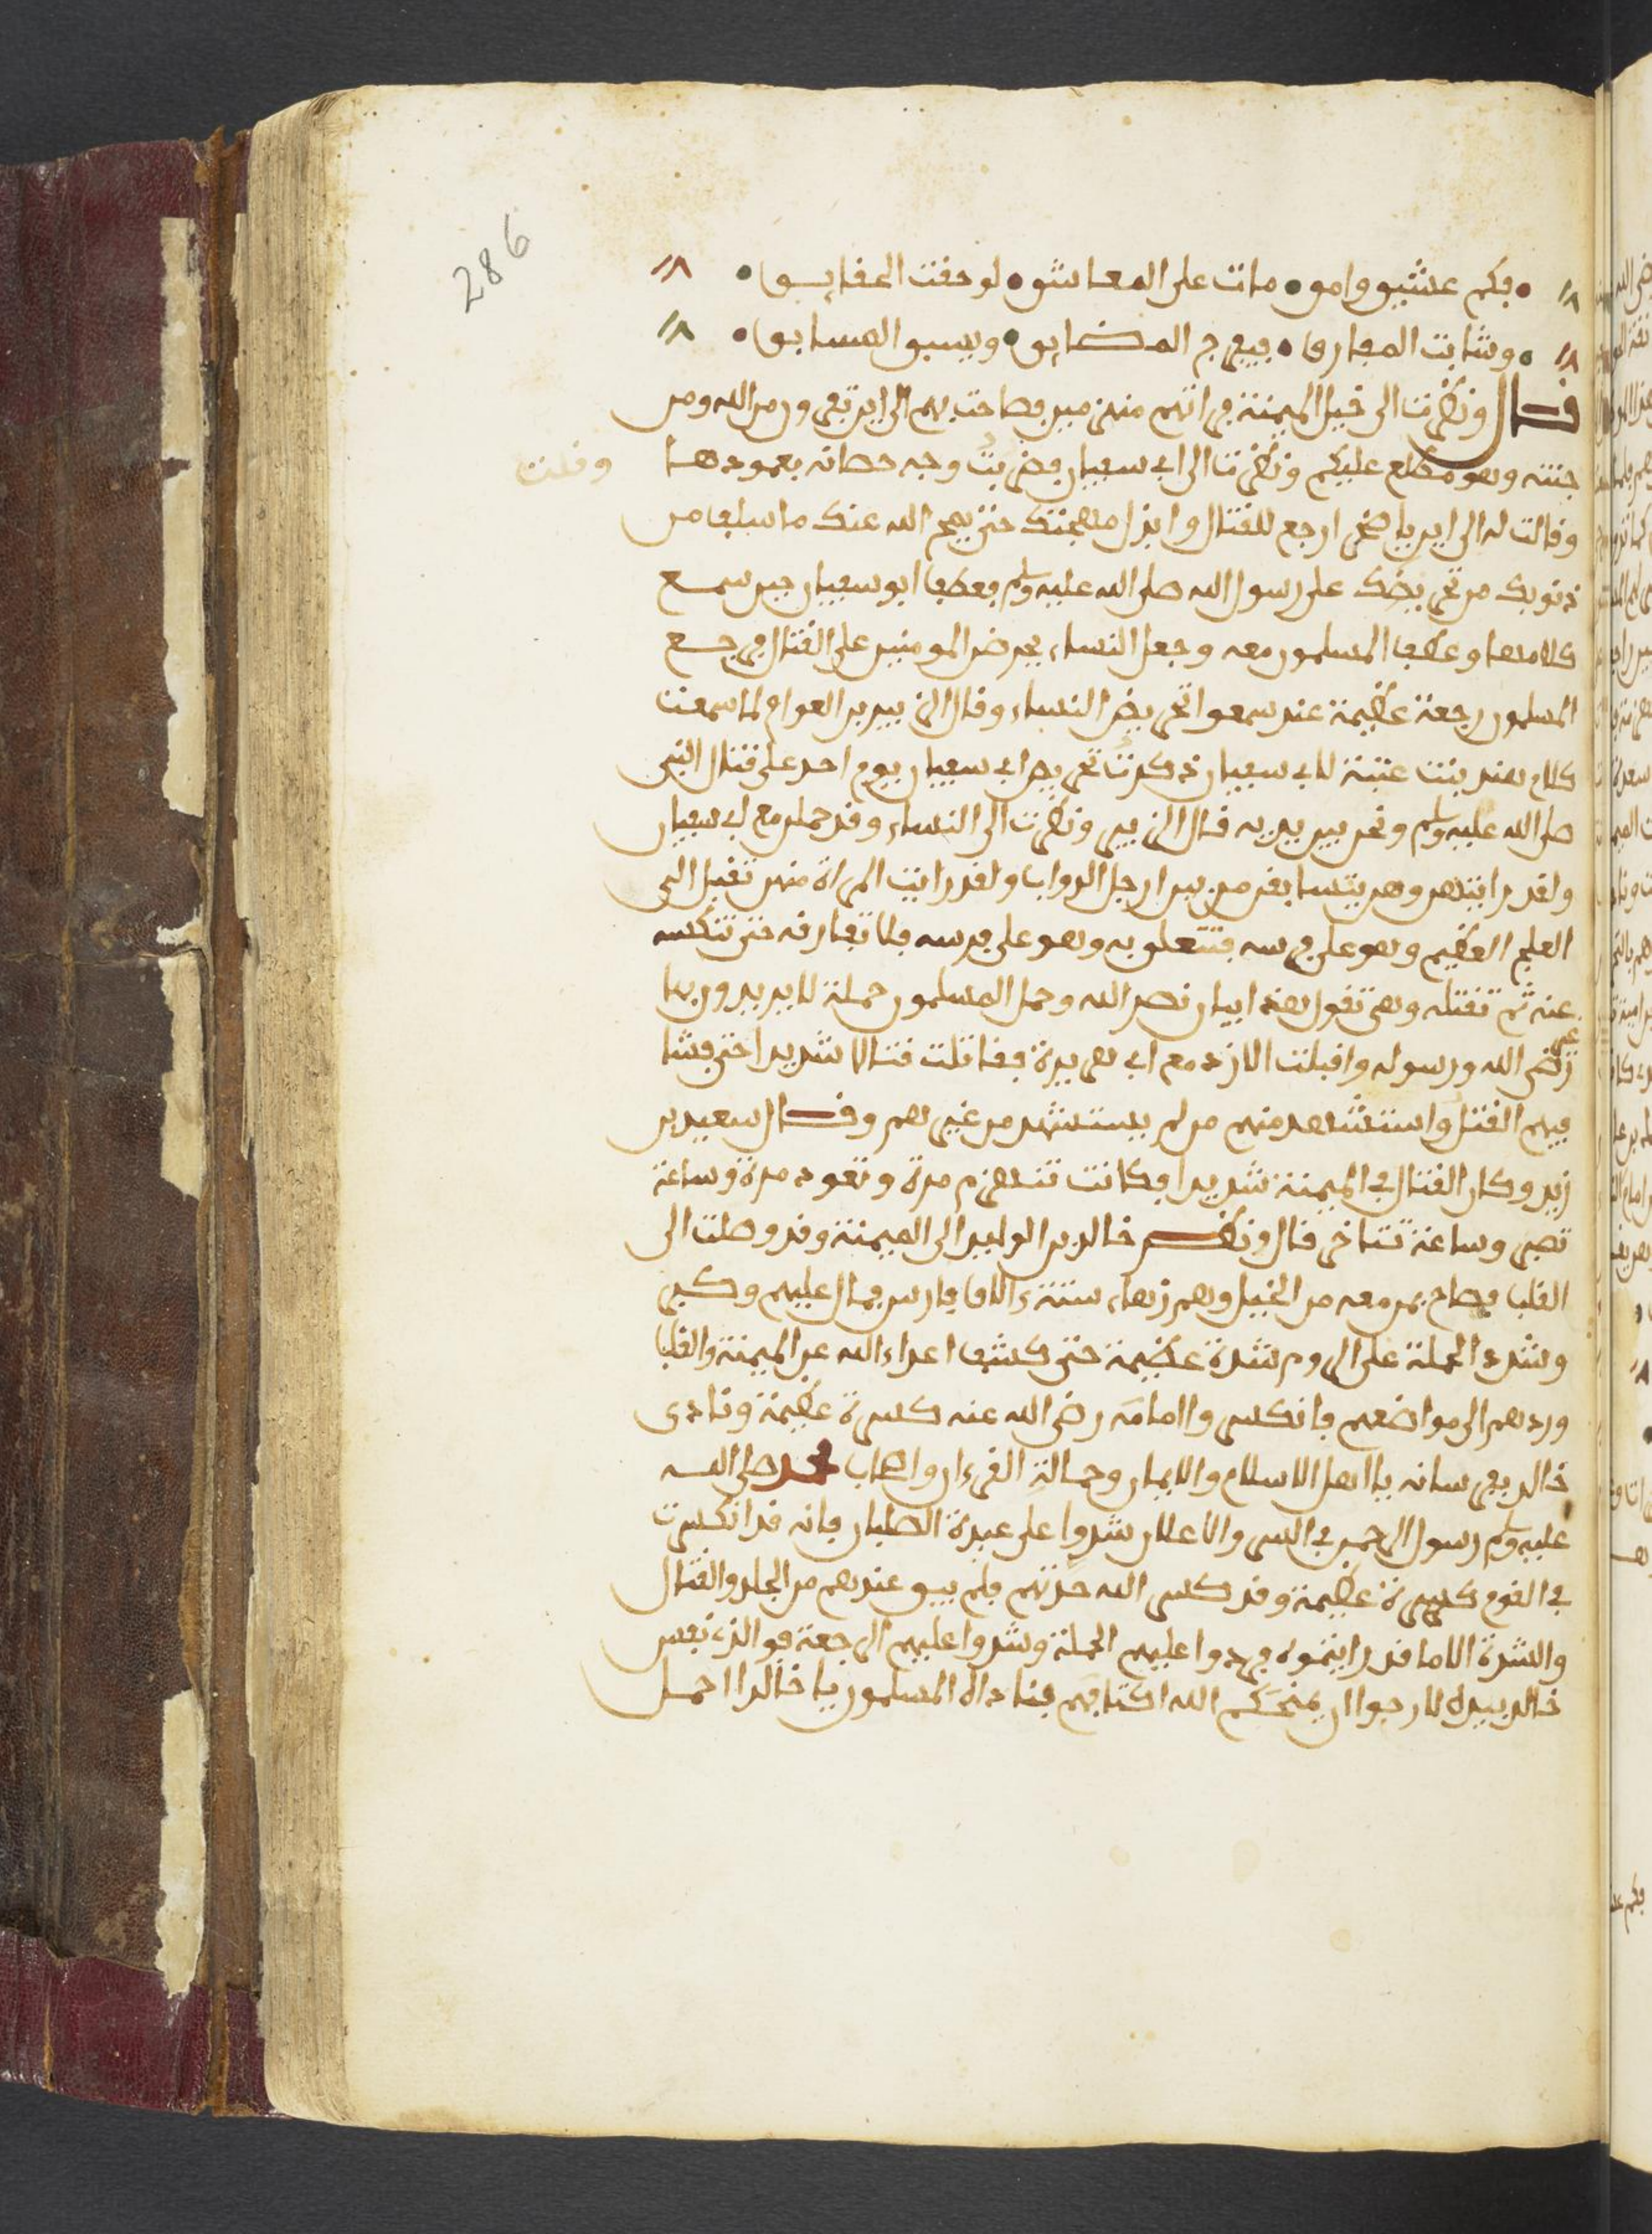 286
فكم عشيق وامق • مات على المعاشق • لو حققت الحقايق •
وشابت المفارق • فيفرج المضايق • ويسبق المسابق •
قال ونظرت الى خيل الميمنة في اتهم منهزمين فصاحت بهم الى اين تفرون من الله ومن
جنته وهو مطلع عليكم ونظرت الى ابي سفيان فضربت وجه حصانه بعمودها
وقلت
وقالت له الى اين يا صخر ارجع للقتال وابذل مهجتك حتى يمحص الله عنك ما سلف من
ذنوبك من تحريضك على رسول الله صلى الله عليه وسلم فعطف ابو سفيان حين سمع
كلامها وعطف المسلمون معه وجعل النساء يحرضن المومنين على القتال فرجع
المسلمون رجعة عظيمة عند سمعوا تحريض النساء وقال الزبير بن العوام لما سمعت
كلام هند بنت عتبة لابي سفيان ذكرت تحريض ابي سفيان يوم احد على قتال النبي
صلى الله عليه وسلم ونحن بين يديه قال الزبير ونظرت الى النساء وقد حملن مع ابي سفيان
ولقد رايتهن وهن يتسابقن من بين ارجل الدواب ولقد رايت المراة منهن تقبل الى
العلج العظيم وهو على فرسه فتتعلق به وهو على فرسه فلا تفارقه حتى تنكسه
عنه ثم تقتله وهي تقول هذا بيان نصر الله وحمل المسلمون حملة لا يريدون بها
غير رضى الله ورسوله واقبلت الازد مع ابي هريرة فقاتلت قتالا شديدا حتى فشا
فيهم القتل واستشهد منهم من لم يستشهد من غيرهم وقال سعيد بن
زيد وكان القتال في الميمنة شديدا فكانت تنهزم مرة وتعود مرة وساعة
تصبر وساعة تتاخر قال ونظر خالد بن الوليد الى الميمنة وقد وصلت الى
القلب فصاح بمن معه من الخيل وهم زهاء ستة ءالاف فارس فمال عليهم وكبر
وشدد الحملة على الروم شدة عظيمة حتى كشف اعداء الله عن الميمنة والقلب
وردهم الى مواضعهم فانكسروا امامه رضى الله عنه كسرة عظيمة ونادى
خالد بفرسانه يا اهل الاسلام والايمان وحمالة القرءان واصحاب محمد صلى الله
عليه وسلم رسول الرحمن في السر والاعلان شدوا على عبدة الصلبان فانه قد انكسرت
في القوم كسرة عظيمة وقد كسر الله حدتهم فلم يبق عندهم من الجلد والقتال
والشدة الا ما قد رايتموه فردوا عليهم الحملة وشدوا عليهم الرجعة فوالذي نفس
خالد بيده لارجوا ان يمنحكم الله اكتافهم فناداه المسلمون يا خالد احمل